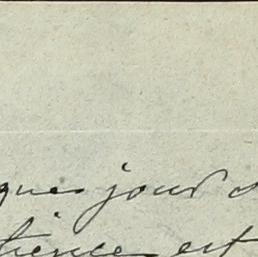 ques jours d
tience est